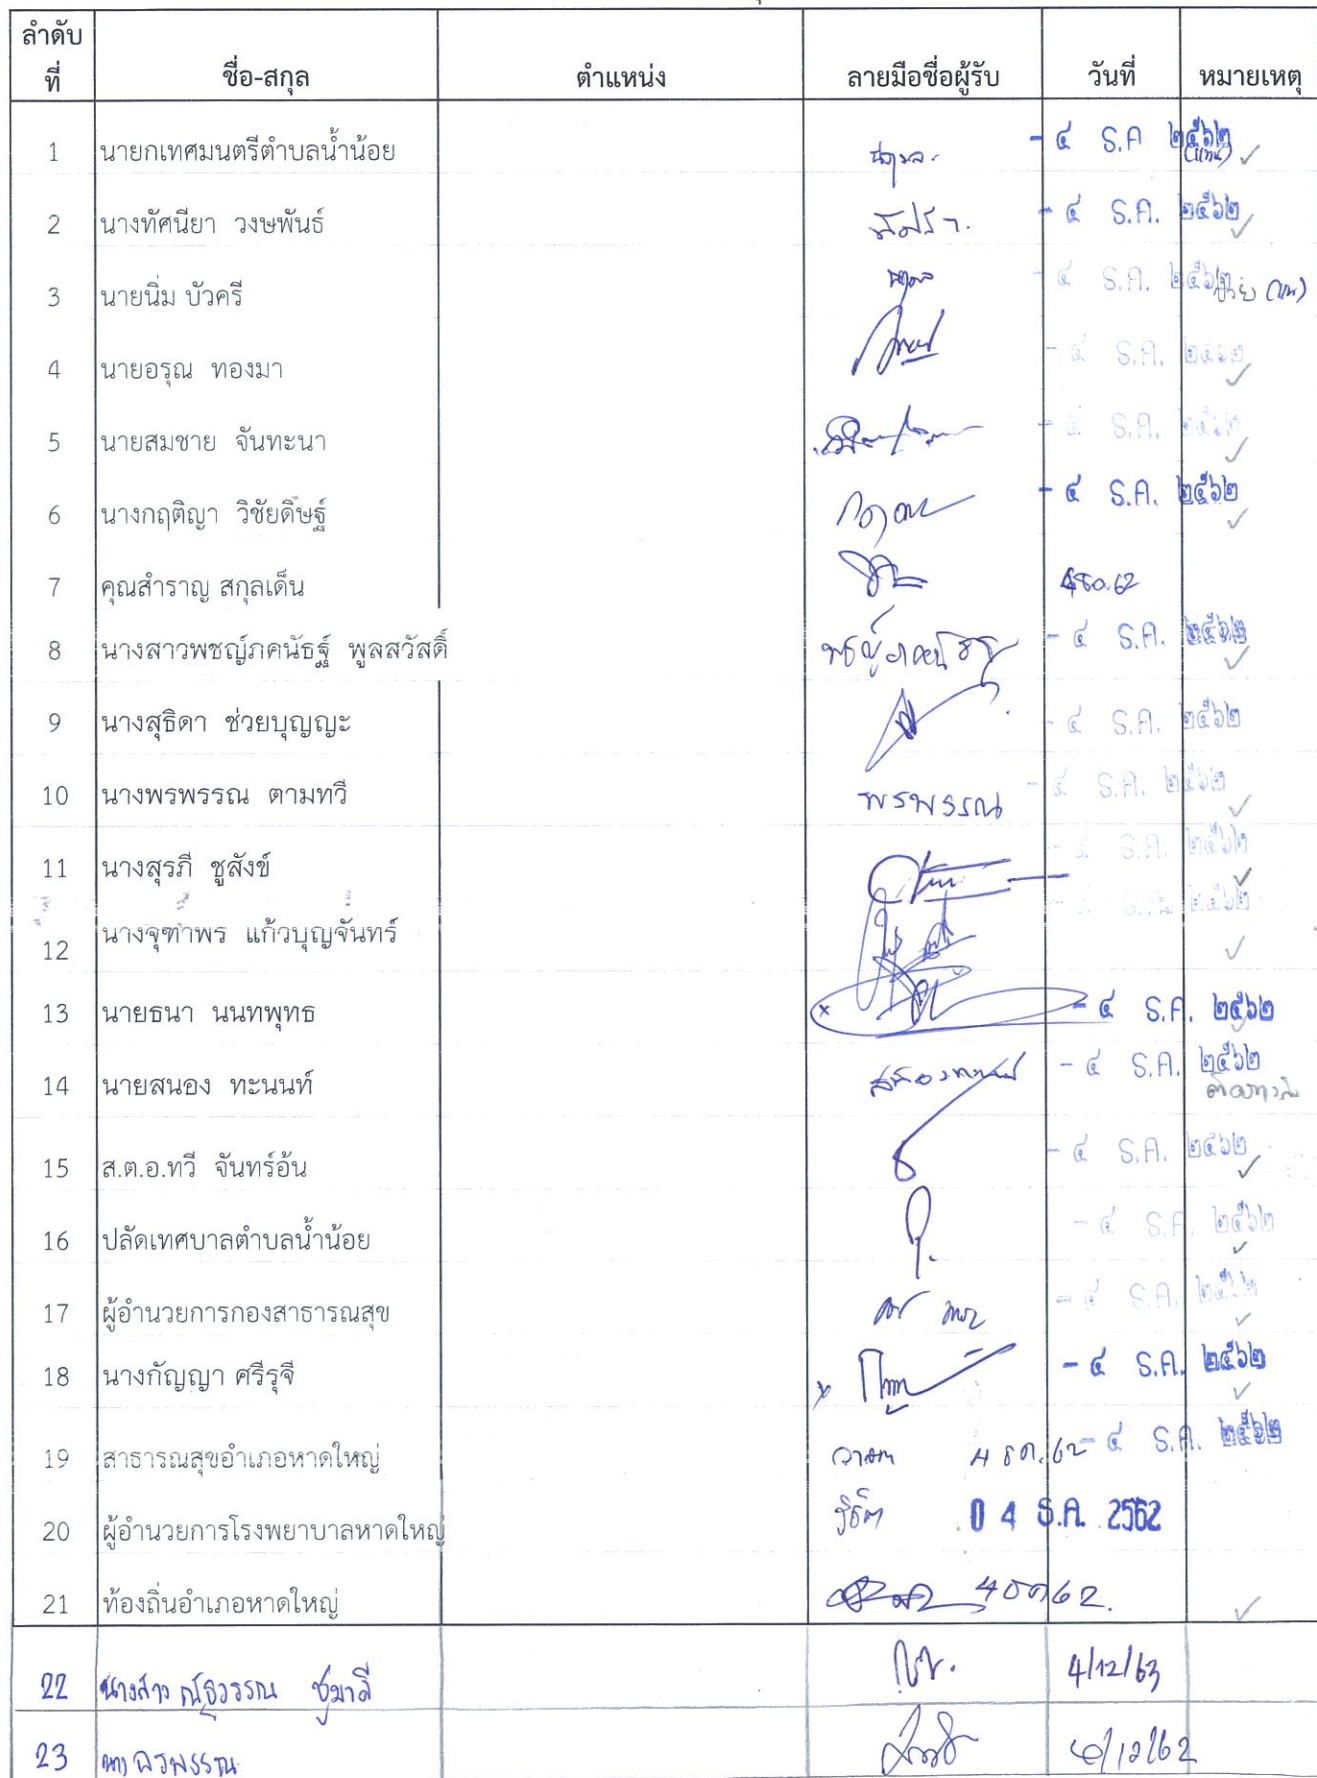 ลำดับที่ ชื่อ-สกุล ตำแหน่ง ลายมือชื่อผู้รับ วันที่ หมายเหตุ
1 นายกเทศมนตรีตำบลน้ำน้อย - ๔ ธ.ค ๒๕๖๒ (แทน) ✓
2 นางทัศนียา วงษพันธ์ - ๔ ธ.ค. ๒๕๖๒ ✓
3 นายนิ่ม บัวครี - ๔ ธ.ค. ๒๕๖๒ ป่วย (แทน)
4 นายอรุณ ทองมา - ๔ ธ.ค. ๒๕๖๒ ✓
5 นายสมชาย จันทะนา - ๔ ธ.ค. ๒๕๖๒ ✓
6 นางกฤติญา วิชัยดิษฐ์ - ๔ ธ.ค. ๒๕๖๒ ✓
7 คุณสำราญ สกุลเด็น 4 ธ.ค. 62
8 นางสาวพชญ์ภคนัธฐ์ พูลสวัสดิ์ พชญ์ภคนัธฐ์ - ๔ ธ.ค. ๒๕๖๒ ✓
9 นางสุธิดา ช่วยบุญญะ - ๔ ธ.ค. ๒๕๖๒
10 นางพรพรรณ ตามทวี พรพรรณ - ๔ ธ.ค. ๒๕๖๒ ✓
11 นางสุรภี ชูสังข์ - ๔ ธ.ค. ๒๕๖๒ ✓
12 นางจุฑาพร แก้วบุญจันทร์ - ๔ ธ.ค. ๒๕๖๒ ✓
13 นายธนา นนทพุทธ x - ๔ ธ.ค. ๒๕๖๒
14 นายสนอง ทะนนท์ - ๔ ธ.ค. ๒๕๖๒
15 ส.ต.อ.ทวี จันทร์อ้น - ๔ ธ.ค. ๒๕๖๒ ✓
16 ปลัดเทศบาลตำบลน้ำน้อย - ๔ ธ.ค. ๒๕๖๒ ✓
17 ผู้อำนวยการกองสาธารณสุข - ๔ ธ.ค. ๒๕๖๒ ✓
18 นางกัญญา ศรีรุจี x - ๔ ธ.ค. ๒๕๖๒ ✓
19 สาธารณสุขอำเภอหาดใหญ่ 4 ธ.ค. 62 - ๔ ธ.ค. ๒๕๖๒
20 ผู้อำนวยการโรงพยาบาลหาดใหญ่ 0 4 ธ.ค. 2562
21 ท้องถิ่นอำเภอหาดใหญ่ 4 ธค 62. ✓
22 นางสาว ณัฐวรรณ ชูมาลี 4/12/63
23 พรพรรณ 4/12/62